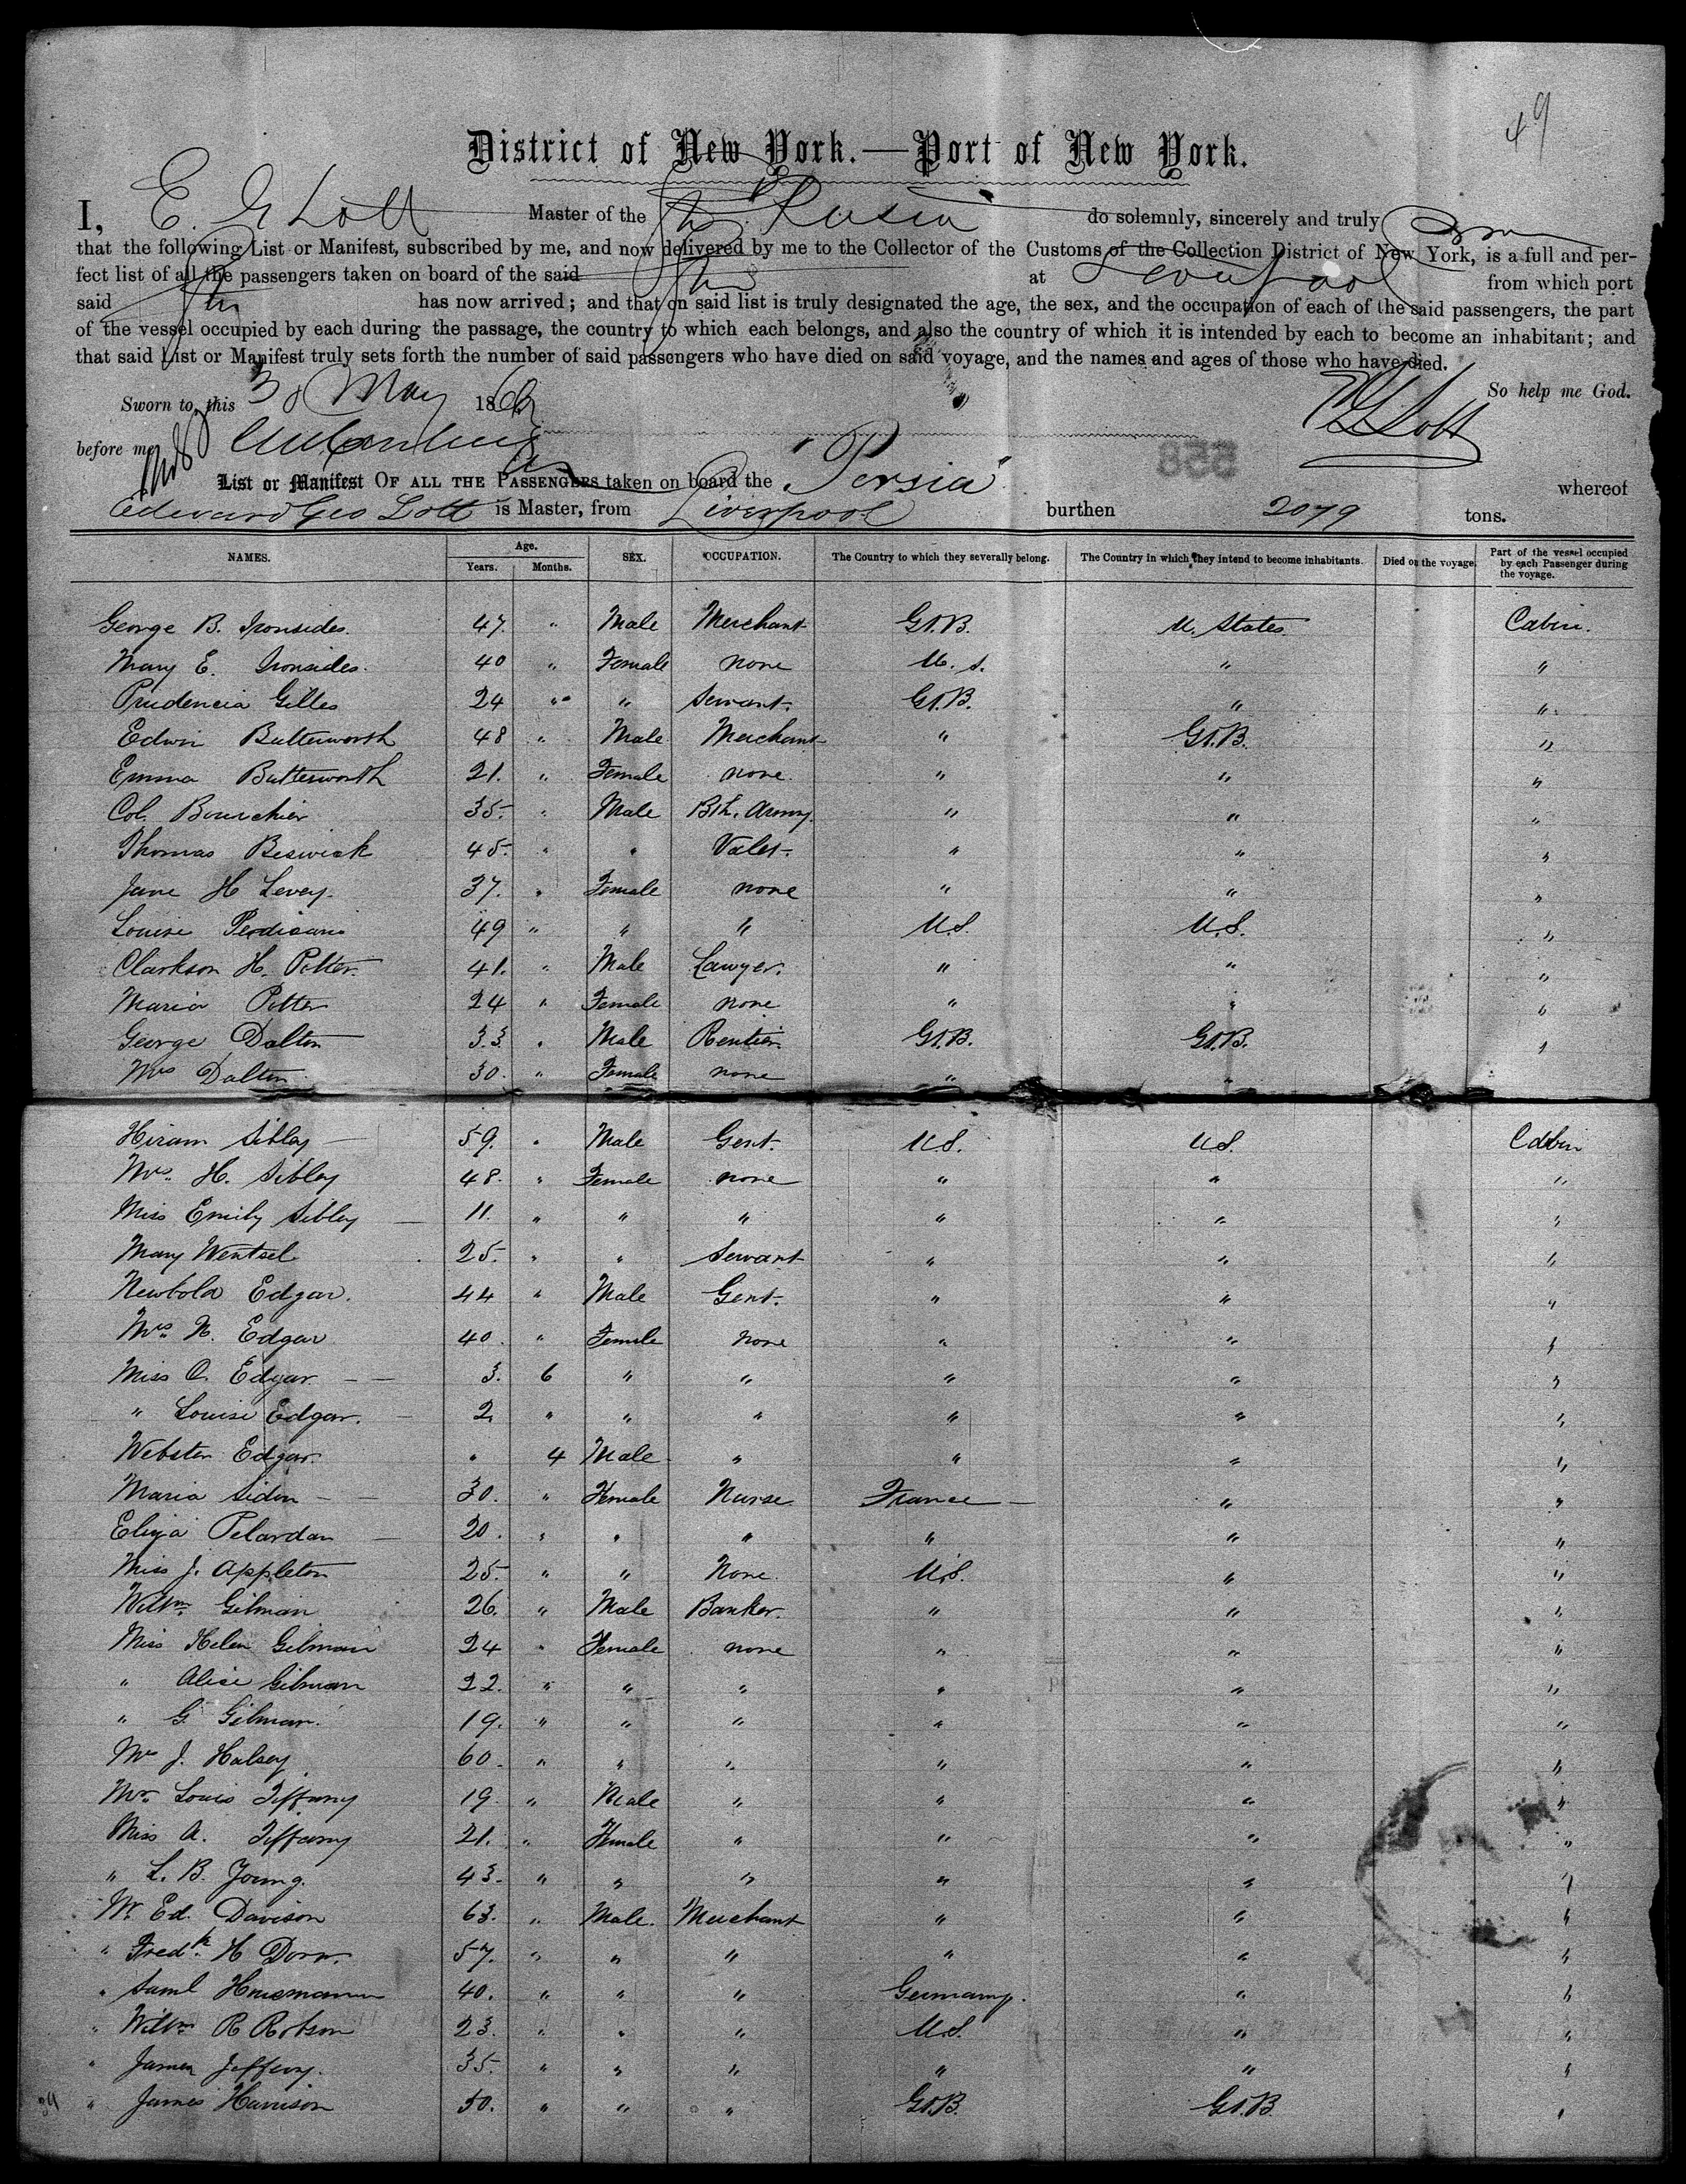 49
District of New York.—Port of New York.
I, E. G Lott Master of the Str Rusia do solemnly, sincerely and truly
that the following List or Manifest, subscribed by me, and now delivered by me to the Collector of the Customs of the Collection District of New York, is a full and per-
fect list of all the passengers taken on board of the said Str at Liverpool from which port
said Str has now arrived; and that on said list is truly designated the age, the sex, and the occupation of each of the said passengers, the part
of the vessel occupied by each during the passage, the country to which each belongs, and also the country of which it is intended by each to become an inhabitant; and
that said List or Manifest truly sets forth the number of said passengers who have died on said voyage, and the names and ages of those who have died.
So help me God.
Sworn to, this 3 May 186
before me
E G Lott
858
List or Manifest OF ALL THE PASSENGERS taken on board the "Persia" whereof
Edward Geo Lott is Master, from Liverpool burthen 2079 tons.
NAMES. Age. Years. Months. SEX. OCCUPATION. The Country to which they severally belong. The Country in which they intend to become inhabitants. Died on the voyage. Part of the vessel occupied by each Passenger during the voyage.
George B. Ironsides. 47. " Male Merchant Gt.B. U. States. Cabin.
Mary E. Ironsides. 40 " Female none U. S. " "
Prudencia Gilles 24 " " Servant. Gt.B. " "
Edwin Butterworth 48 " Male Merchant " Gt.B. "
Emma Butterworth 21. " Female none. " " "
Col. Bourchier 35. " Male Bth. Army. " " "
Thomas Beswick 45. " " Valet. " " "
Jane H Levey. 37. " Female none " " "
Louise Perdicaris 49 " " " U.S. U.S. "
Clarkson H. Potter. 41. " Male Lawyer. " " "
Maria Potter 24 " Female none " " "
George Dalton 33. " Male Rentier. Gt.B. Gt.B. "
Mrs Dalton 30. " Female none " "
Hiram Sibley 59. " Male Gent. U.S. U.S. Cabin
Mrs. H. Sibley 48. " Female none " " "
Miss Emily Sibley 11. " " " " " "
Mary Wentzel 25. " " Servant " " "
Newbold Edgar. 44 " Male Gent. " " "
Mrs. N. Edgar 40. " Female none " " "
Miss C. Edgar. 3. 6 " " " " "
" Louise Edgar. 2 " " " " " "
Webster Edgar. " 4 Male " " " "
Maria Sidon 30. " Female Nurse France " "
Eliza Pelardan 20. " " " " " "
Miss J. Appleton 25. " " None. U.S. " "
Willm. Gilman 26. " Male Banker. " " "
Miss Helen Gilman 24 " Female none " " "
" Alice Gilman 22. " " " " " "
" G. Gilman. 19. " " " " " "
Mrs J. Halsey 60. " " " " " "
Mr. Louis Tiffany 19. " Male " " " "
Miss A. Tiffany 21. " Female " " " "
" L. B. Young. 43. " " " " " "
Mr Ed. Davison 63. " Male. Merchant " " "
" Fredk. H Dorr. 57. " " " " " "
" Saml 40. " " " Germany. " "
" Willm. R Robson 23. " " " U.S. " "
" James Jeffery. 35. " " " " " "
" James Harrison 50. " " " Gt.B. Gt.B. "